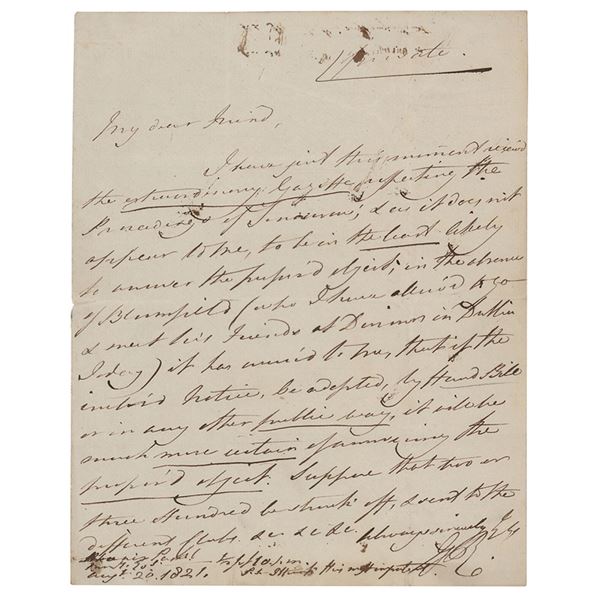 Private.
My dear Friend,
I have just this moment receiv'd
the extraordinary Gazette respecting the
Proceedings of Tomorrow; & as it does not
appear to me, to be in the least likely
to answer the propos'd object; in the absence
of Bloomfield (who I have allow'd to go
& meet his Friends at Dinner in Dublin
Today) it has occurr'd to me, that if the
inclos'd Notice, be adopted, by Hand Bill
or in any other public way, it will be
much more certain of answering the
propos'd object. Suppose that two or
three Hundred be struck off, & sent to the
different Clubs. &c &c &c. always sincerely Yrs
GR.
Augt. 20. 1821.